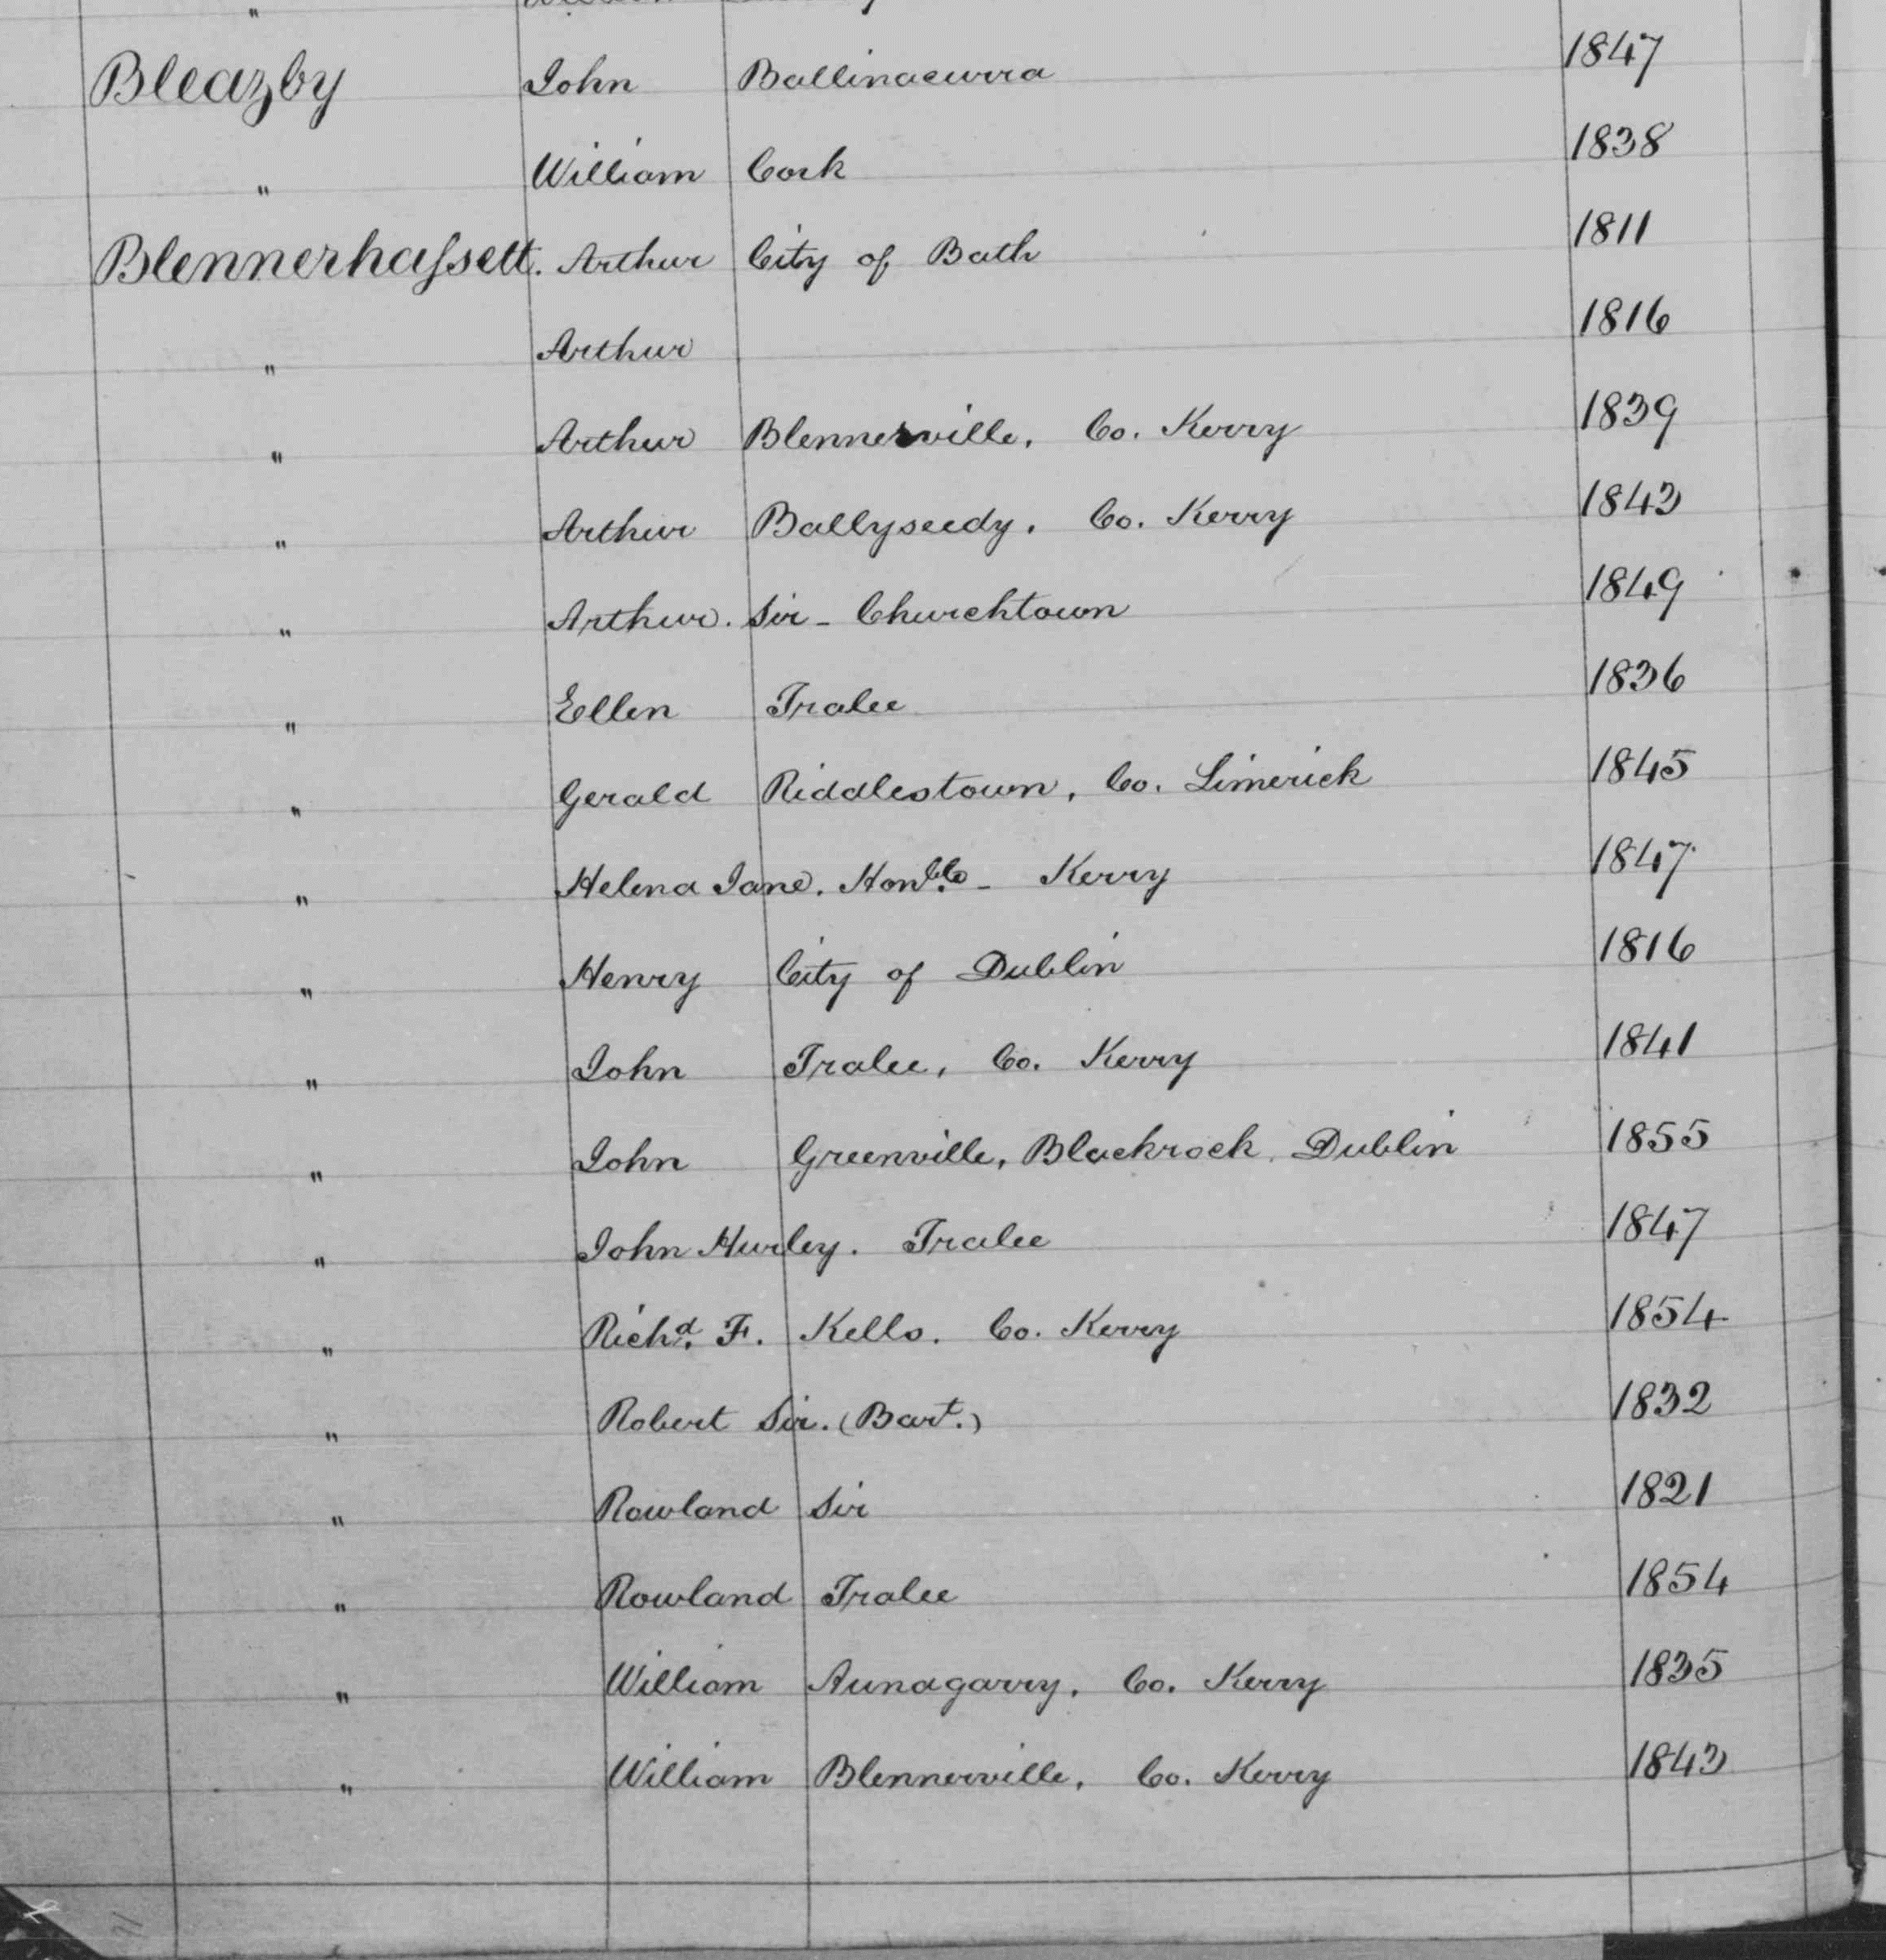 "
Bleazby John Ballinacurra 1847
" William Cork 1838
Blennerhassett. Arthur City of Bath 1811
" Arthur 1816
" Arthur Blennerville, Co. Kerry 1839
" Arthur Ballyseedy, Co. Kerry 1843
" Arthur. Sir - Churchtown 1849
" Ellen Tralee 1836
" Gerald Riddlestown, Co. Limerick 1845
" Helena Jane. Honble - Kerry 1847
" Henry City of Dublin 1816
" John Tralee, Co. Kerry 1841
" John Greenville, Blackrock, Dublin 1855
" John Hurley. Tralee 1847
" Richd. F. Kells. Co. Kerry 1854
" Robert Sir. (Bart.) 1832
" Rowland Sir 1821
" Rowland Tralee 1854
" William Annagarry, Co. Kerry 1835
" William Blennerville, Co. Kerry 1843